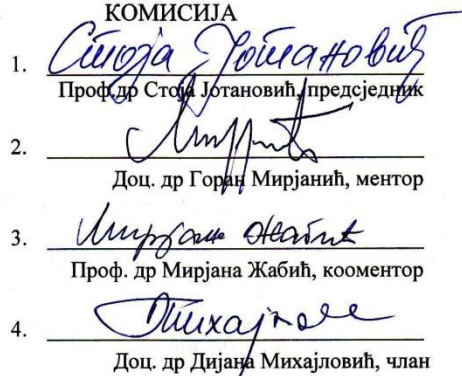 КОМИСИЈА
1. Стоја Јотановић
Проф.др Стоја Јотановић, предсједник
2.
Доц. др Горан Мирјанић, ментор
3. Мирјана Жабић
Проф. др Мирјана Жабић, кооментор
4.
Доц. др Дијана Михајловић, члан